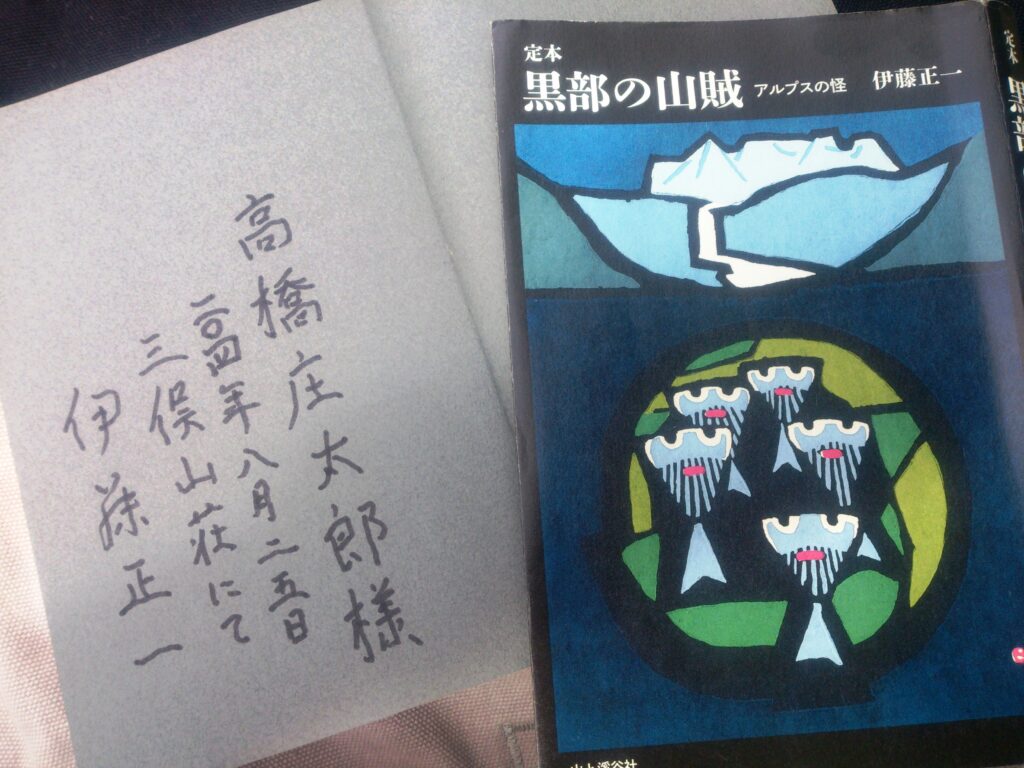 高橋庄太郎様
二〇一四年八月二五日
三俣山荘にて
伊藤正一
定本
黒部の山賊
アルプスの怪
伊藤正一
山と溪谷社
定本
黒部